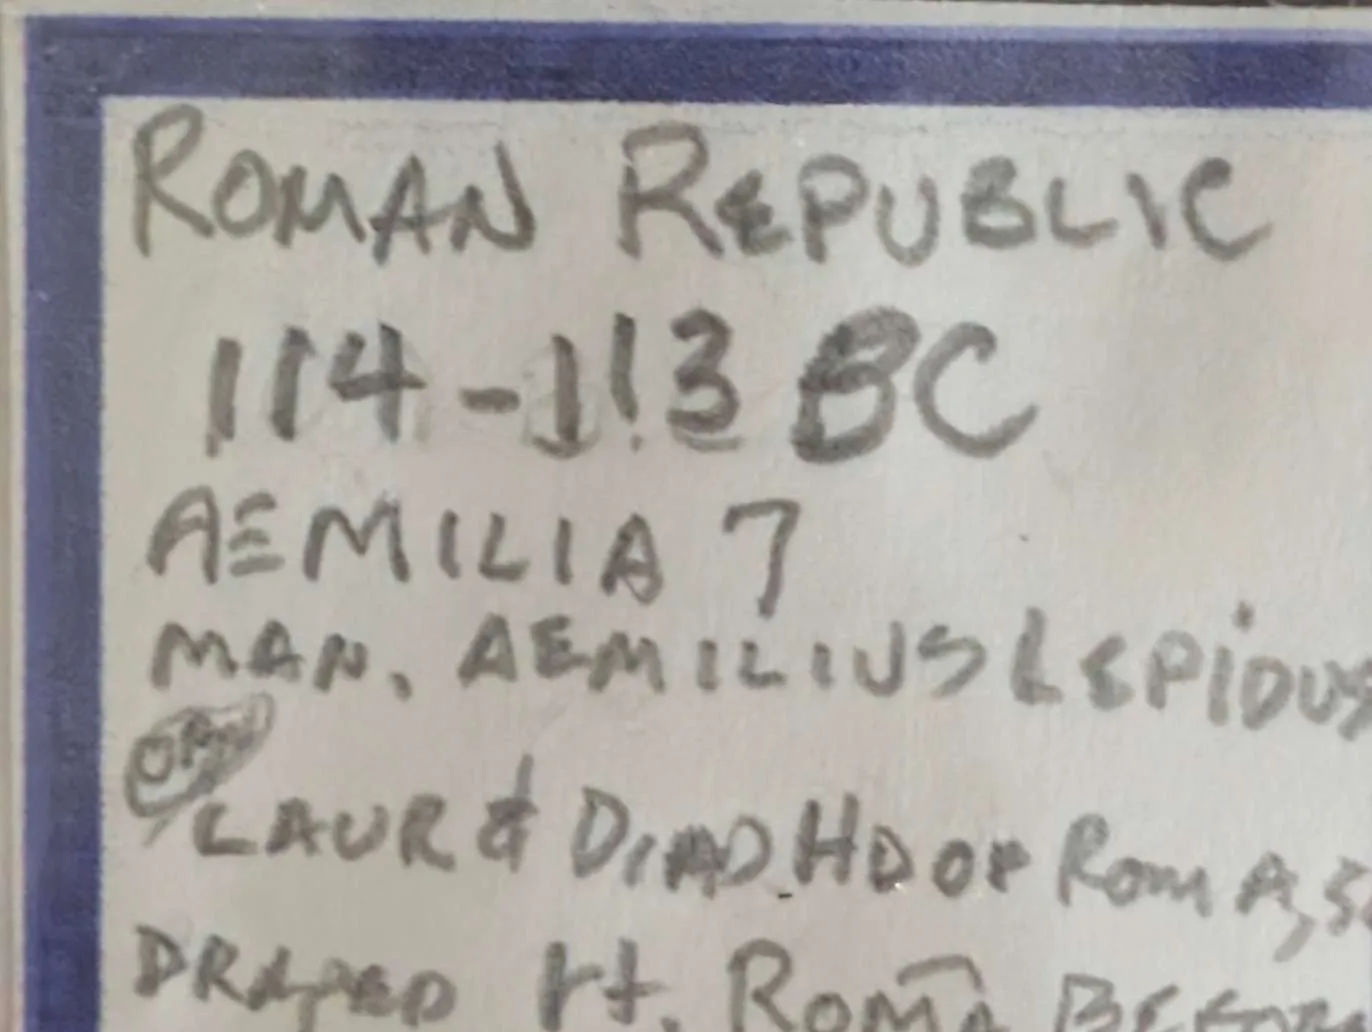 ROMAN REPUBLIC
114-113 BC
AEMILIA 7
MAN. AEMILIUS LEPIDUS
LAUR & DIAD HD OF ROMA,
DRAPED rt. ROMA